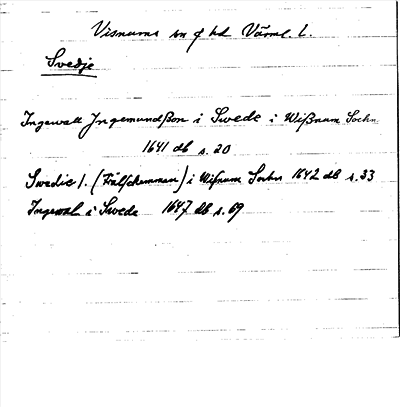 Visnums sn o hd Värml. l.
Svedje
Ingewall Jngemundßon i Swede i Wißnum Sochn
1641 db s. 20
Swedie 1. (Frälsehemman) i Wißnum Sochn 1642 db s. 33
Ingewal i Swede 1647 db s. 69